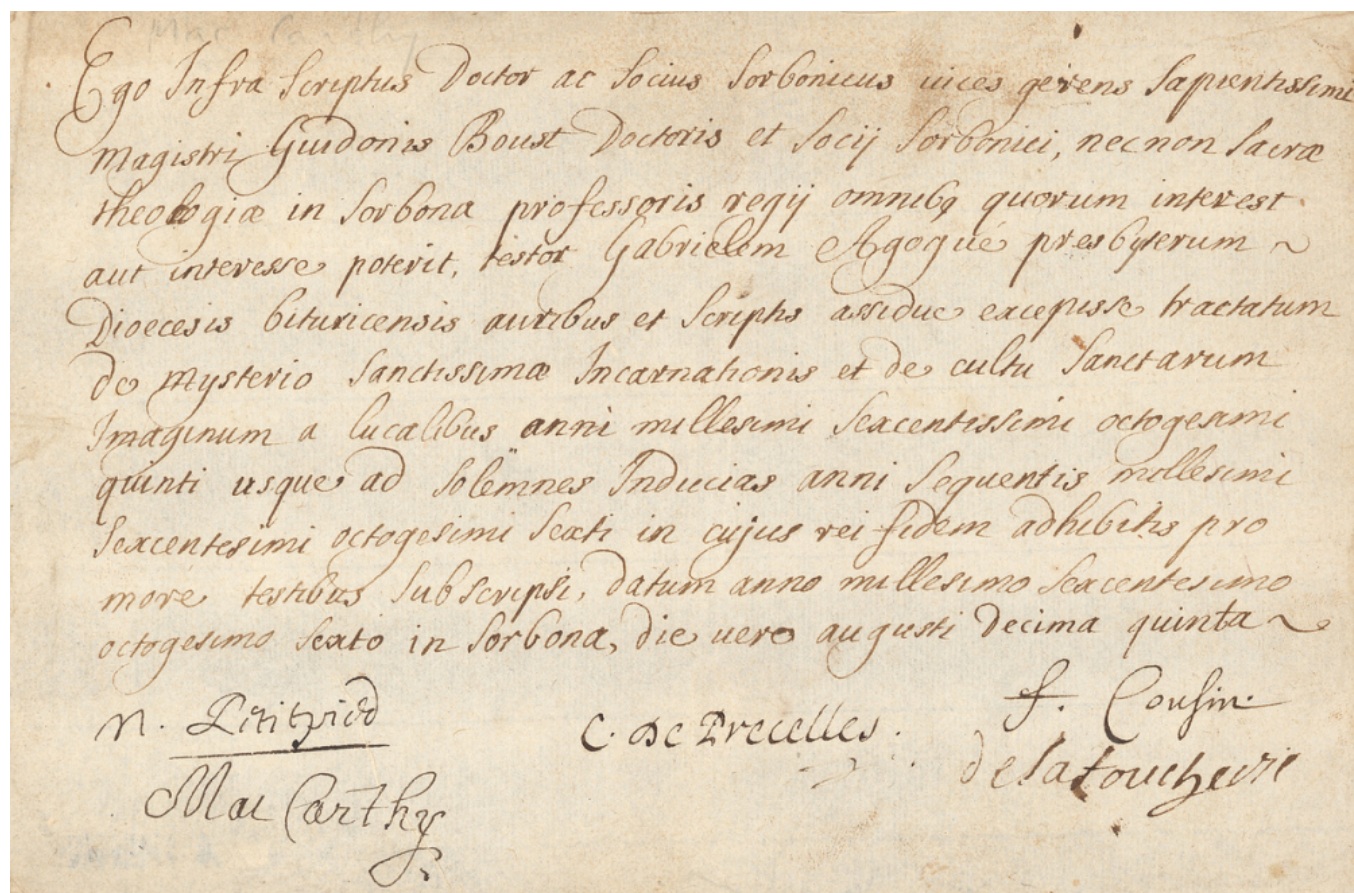 Mac Carthy
Ego Infra Scriptus Doctor ac Socius Sorbonicus uices gerens Sapientissimi
Magistri Guidonis Boust Doctoris et Socij Sorbonici, necnon Sacræ
theologiæ in Sorbona professoris regij omnibq quorum interest
aut interesse poterit, testor Gabrielem Agogué presbyterum ~
Dioecesis bituricensis auribus et Scriptis assidue excepisse tractatum
de Mysterio Sanctissimæ Incarnationis et de cultu Sanctarum
Imaginum a lucalibus anni millesimi Sexcentissimi octogesimi
quinti usque ad Solemnes Inducias anni Sequentis millesimi
Sexcentesimi octogesimi Sexti in cujus rei fidem adhibitis pro
more testibus Subscripsi, datum anno millesimo Sexcentesimo
octogesimo Sexto in Sorbona, die uero augusti Decima quinta ~
N. Petitpied
C. De Precelles.
f. Cousin.
Mac Carthy
delatoucheire